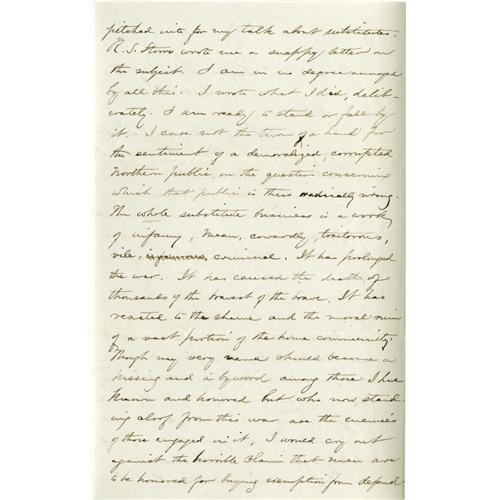 pitched into for my talk about substitutes.
R. S. Storrs wrote me a snappy letter on
the subject. I am in no degree annoyed
by all this. I wrote what I did, delib-
erately. I am ready to stand or fall by
it. I care not the turn of a hand for
the sentiment of a demoralized, corrupted
Northern public, on the question concerning
which that public is thus radically wrong.
The whole substitute business is a work
of infamy, mean, cowardly, traitorous,
vile, criminal. It has prolonged
the war. It has caused the death of
thousands of the bravest of the brave. It has
reacted to the shame and the moral ruin
of a vast portion of the home community.
Though my very name should become a
hissing and a byword among those I have
known and honored but who now, stand-
ing aloof from this war are the enemies
of those engaged in it, I would cry out
against the horrible claim that men are
to be honored for buying exemption from defend-